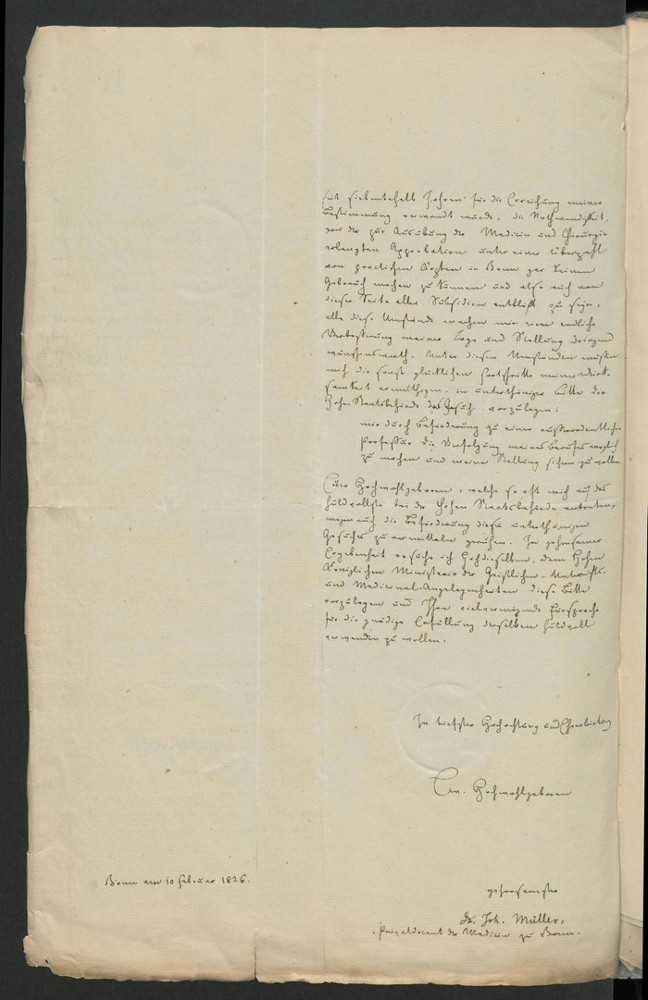 seit siebentehalb Jahren für die Erreichung meiner
Bestimmung verwandt wurde, die Nothwendigkeit,
von der zur Ausübung der Medicin und Chirurgie
erlangten Approbation unter einer Überzahl
von practischen Ärzten in Bonn gar keinen
Gebrauch machen zu können und also auch von
dieser Seite aller Subsidien entblößt zu seyn,
alle diese Umstände machen mir eine endliche
Verbesserung meiner Lage und Stellung dringend
wünschenswerth. Unter diesen Umständen müssen
mich die sonst glücklichen Fortschritte meiner Wirk-
samkeit ermuthigen, in unterthäniger Bitte der
Hohen Staatsbehörde das Gesuch vorzulegen:
mir durch Beförderung zu einer außerordentlichen
Professur die Verfolgung meines Berufes möglich
zu machen und meine Stellung sichern zu wollen
Euer Hochwohlgeboren, welche so oft mich auf das
huldvollste bei der Hohen Staatsbehörde vertreten,
mögen auch die Beförderung dieses unterthänigen
Gesuches zu vermitteln geruhen. In gehorsamer
Ergebenheit ersuche ich Hochdieselben, dem Hohen
Königlichen Ministerio der Geistlichen- Unterrichts-
und Medicinal-Angelegenheiten diese Bitte
vorzulegen und Ihre vielvermögende Fürsprache
für die gnädige Erfüllung derselben huldvoll
verwenden zu wollen.
In tiefster Hochachtung und Ehrerbietung
Ew. Hochwohlgeboren
Bonn am 10 Februar 1826.
gehorsamster
Dr. Joh. Müller,
Privatdocent der Medicin zu Bonn.